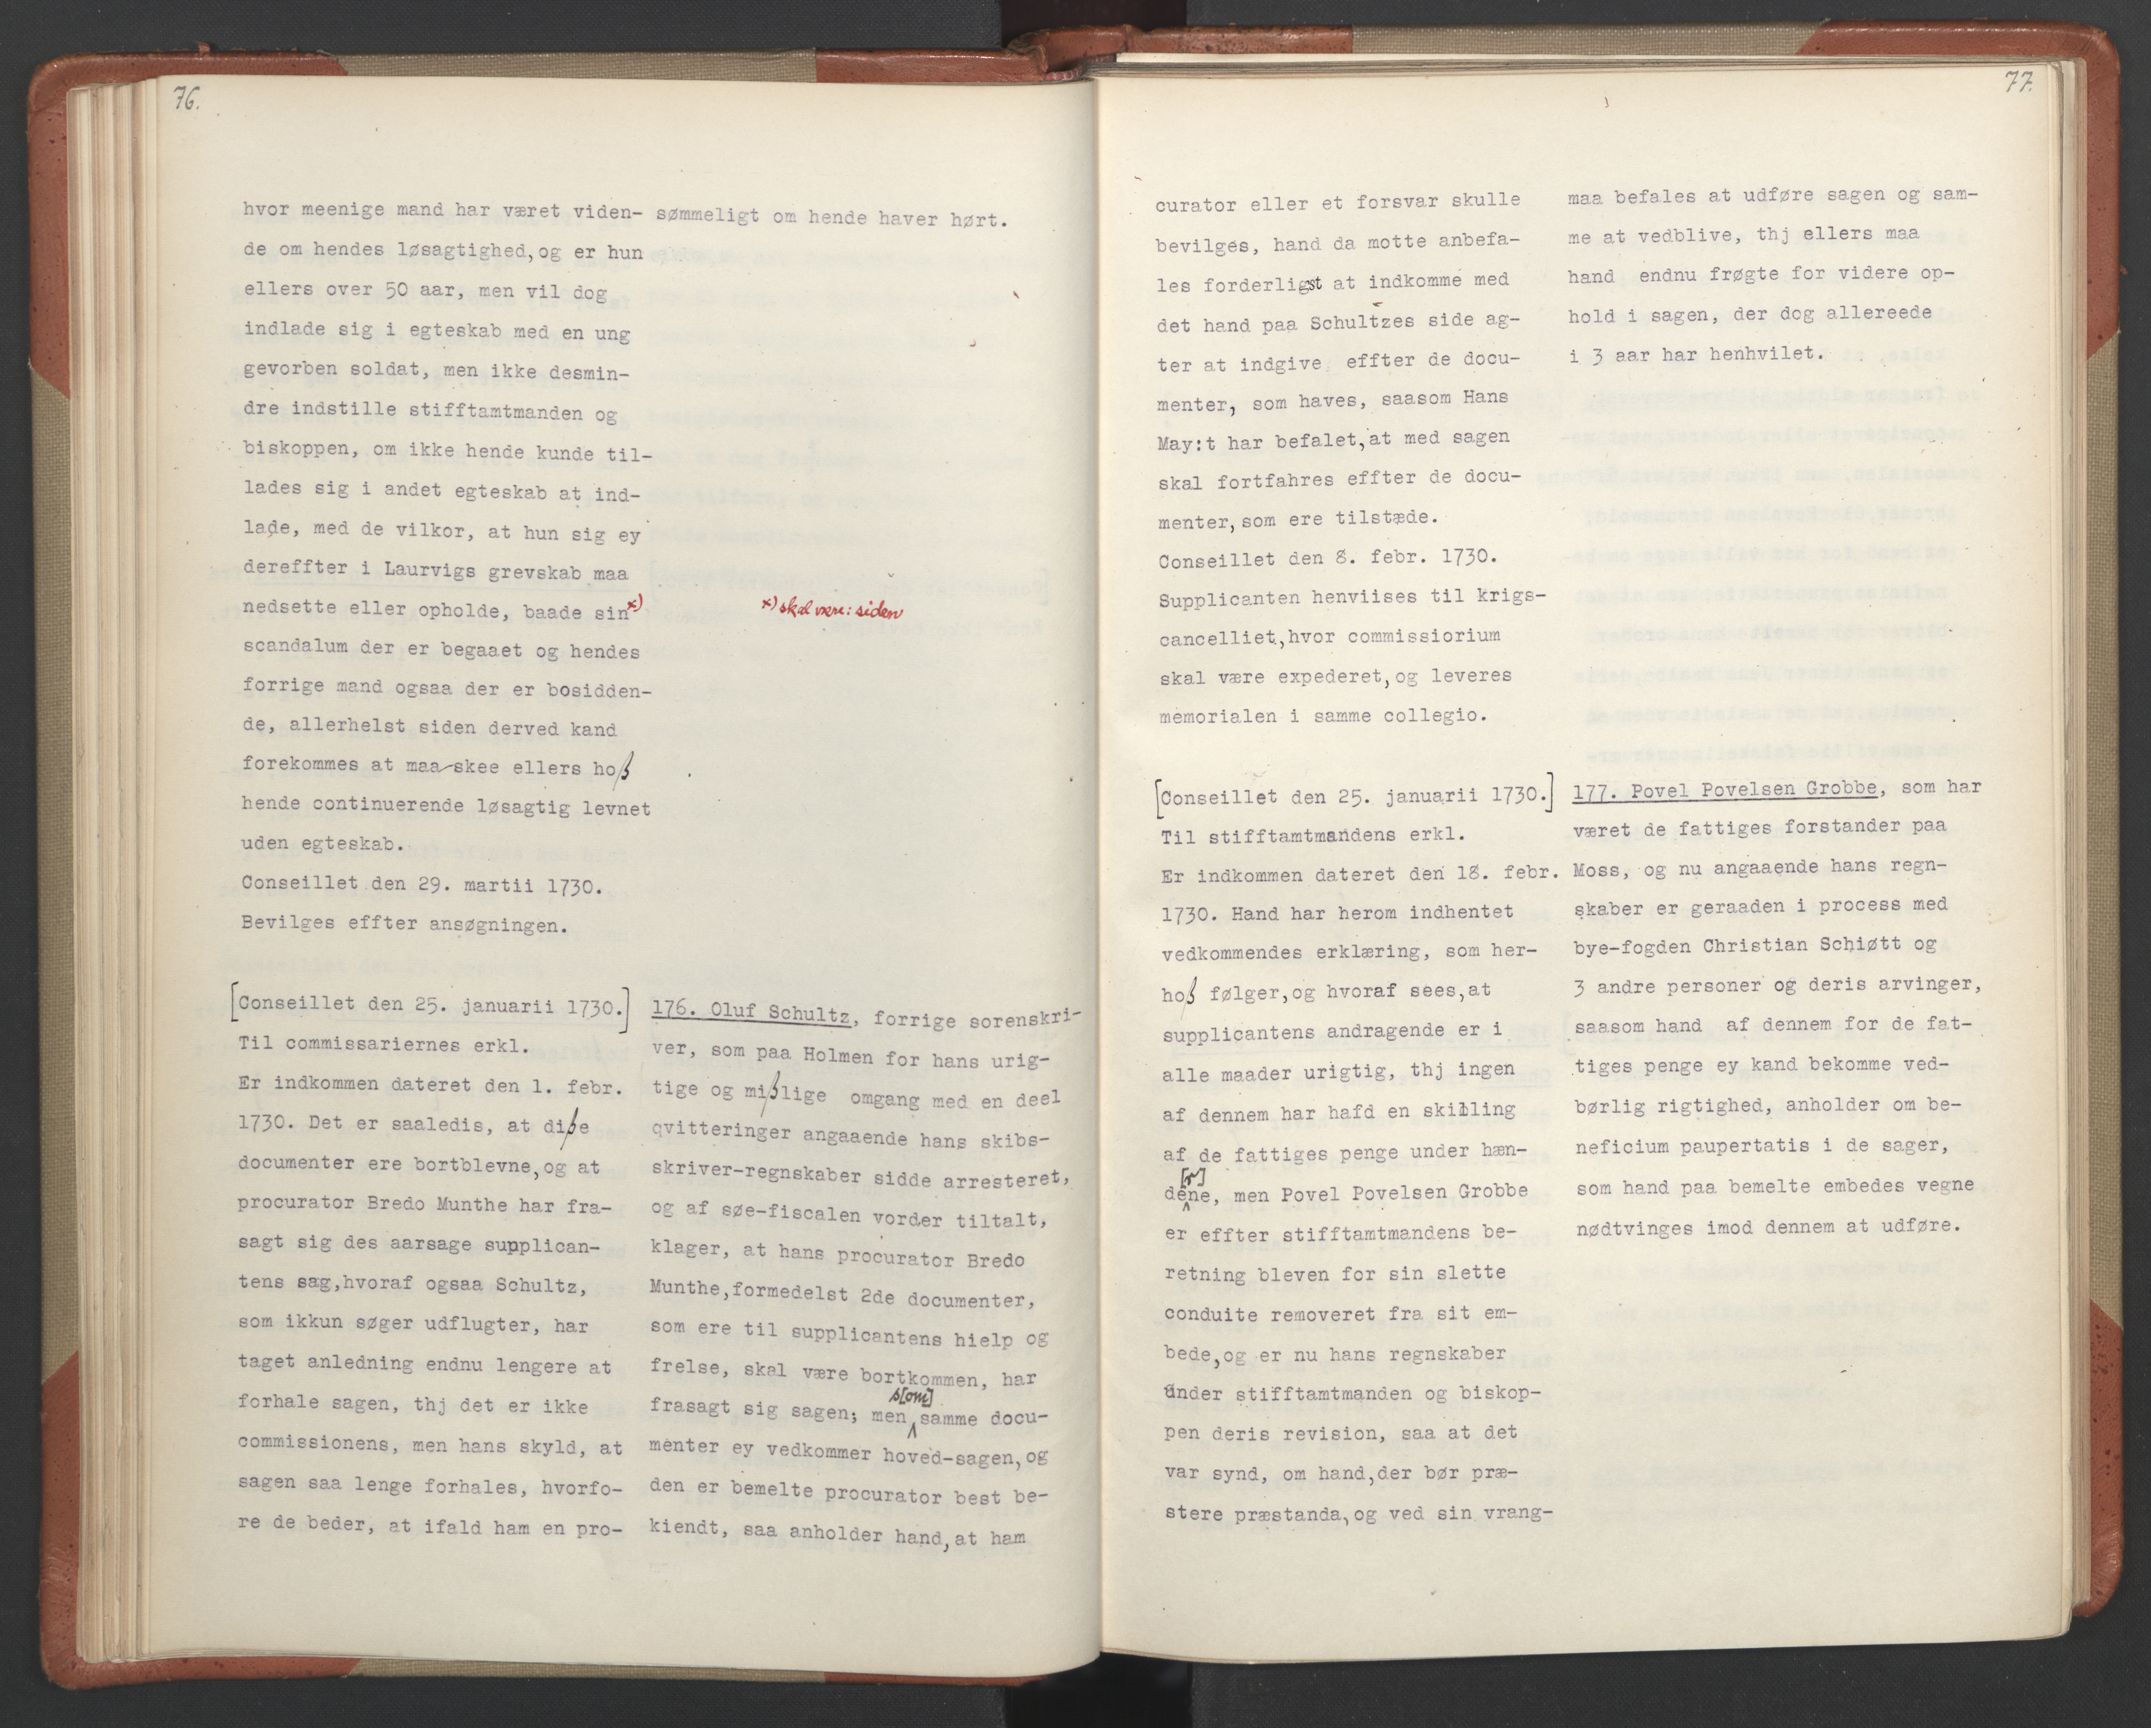 76.
hvor meenige mand har været viden-
de om hendes løsagtighed, og er hun
ellers over 50 aar, men vil dog
indlade sig i egteskab med en ung
gevorben soldat, men ikke desmin-
dre indstille stifftamtmanden og
biskoppen, om ikke hende kunde til-
lades sig i andet egteskab at ind-
lade, med de vilkor, at hun sig ey
dereffter i Laurvigs grevskab maa
nedsette eller opholde, baade sin x)
scandalum der er begaaet og hendes
forrige mand ogsaa der er bosidden-
de, allerhelst siden derved kand
forekommes at maa skee ellers hoß
hende continuerende løsagtig levnet
uden egteskab.
Conseillet den 29. martii 1730.
Bevilges effter ansøgningen.
sømmeligt om hende haver hørt.
x) skal være: siden
[Conseillet den 25. januarii 1730.]
Til commissariernes erkl.
Er indkommen dateret den 1. febr.
1730. Det er saaledis, at diße
documenter ere bortblevne, og at
procurator Bredo Munthe har fra-
sagt sig des aarsage supplican-
tens sag, hvoraf ogsaa Schultz,
som ikkun søger udflugter, har
taget anledning endnu lengere at
forhale sagen, thj det er ikke
commissionens, men hans skyld, at
sagen saa lenge forhales, hvorfo-
re de beder, at ifald ham en pro-
176. Oluf Schultz, forrige sorenskri-
ver, som paa Holmen for hans urig-
tige og mißlige omgang med en deel
qvitteringer angaaende hans skibs-
skriver-regnskaber sidde arresteret,
og af søe-fiscalen vorder tiltalt,
klager, at hans procurator Bredo
Munthe, formedelst 2de documenter,
som ere til supplicantens hielp og
frelse, skal være bortkommen, har
frasagt sig sagen; men s[om] samme docu-
menter ey vedkommer hoved-sagen, og
den er bemelte procurator best be-
kiendt, saa anholder hand, at ham
77.
curator eller et forsvar skulle
bevilges, hand da motte anbefa-
les forderligst at indkomme med
det hand paa Schultzes side ag-
ter at indgive effter de docu-
menter, som haves, saasom Hans
May:t har befalet, at med sagen
skal fortfahres effter de docu-
menter, som ere tilstæde.
Conseillet den 8. febr. 1730.
Supplicanten henviises til krigs-
cancelliet, hvor commissiorium
skal være expederet, og leveres
memorialen i samme collegio.
maa befales at udføre sagen og sam-
me at vedblive, thj ellers maa
hand endnu frøgte for videre op-
hold i sagen, der dog allereede
i 3 aar har henhvilet.
[Conseillet den 25. januarii 1730.]
Til stifftamtmandens erkl.
Er indkommen dateret den 18. febr.
1730. Hand har herom indhentet
vedkommendes erklæring, som her-
hoß følger, og hvoraf sees, at
supplicantens andragende er i
alle maader urigtig, thj ingen
af dennem har hafd en skilling
af de fattiges penge under hæn-
de[r]ne, men Povel Povelsen Grobbe
er effter stifftamtmandens be-
retning bleven for sin slette
conduite removeret fra sit em-
bede, og er nu hans regnskaber
under stifftamtmanden og biskop-
pen deris revision, saa at det
var synd, om hand, der bør præ-
stere præstanda, og ved sin vrang-
177. Povel Povelsen Grobbe, som har
været de fattiges forstander paa
Moss, og nu angaaende hans regn-
skaber er geraaden i process med
bye-fogden Christian Schiøtt og
3 andre personer og deris arvinger,
saasom hand af dennem for de fat-
tiges penge ey kand bekomme ved-
børlig rigtighed, anholder om be-
neficium paupertatis i de sager,
som hand paa bemelte embedes vegne
nødtvinges imod dennem at udføre.